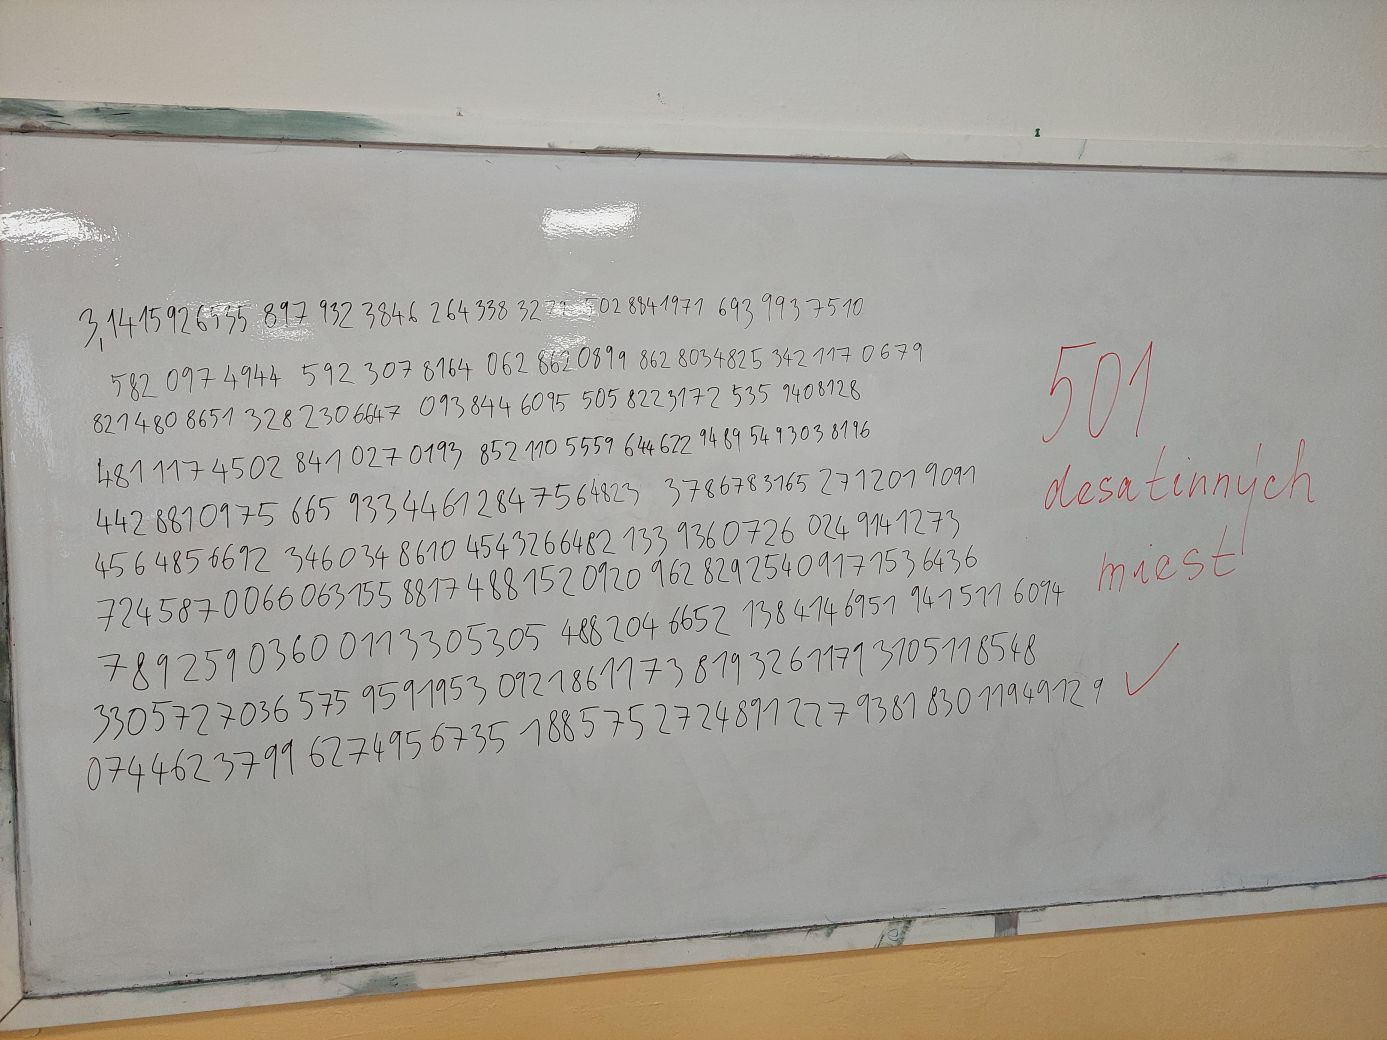 3,1415926535 897 932 3846 264 338 3279 502 8841971 693 993 7510
582 097 4944 592 307 8164 062 862 0899 862 8034825 342 117 0679
821480 8651 328 230 6647 093 844 6095 505 8223172 535 9408128
481 117 4502 841 027 0193 852 110 5559 644 622 9489 549 303 8196
442 8810975 665 933 4461 284 756 4823 3786783165 271 201 9091
456 485 6692 346 034 8610 4543266482 133 9360726 024 9141273
7245870066063155 8817 4881520920 962 829 2540 9171536436
7892590360 0113305305 488 204 6652 138 414 6951 941 511 6094
3305727036 575 9591953 0921861173 819 3261179 3105118548
0744623799 6274956735 188 575 2724891227 9381 830 11949129
501
desatinných
miest